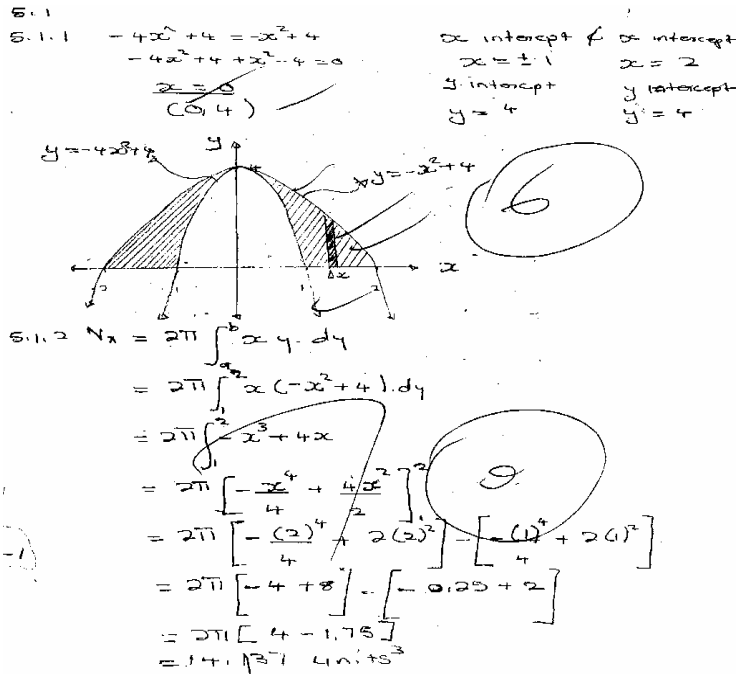 5.1
5.1.1 -4x² + 4 = -x² + 4
-4x² + 4 + x² - 4 = 0
x = 0
(0, 4)
x intercept & x intercept
x = ± 1 x = 2
y intercept y intercept
y = 4 y = 4
y = -4x² + 4 y 4 y = -x² + 4
6
-2 -1 1 Δx 2 x
5.1.2 Vx = 2π ∫ₐᵇ x y . dy
= 2π ∫₁² x (-x² + 4) . dy
= 2π ∫₁² - x³ + 4x
= 2π [ - x⁴/4 + 4x²/2 ]₁²
0
= 2π [ - (2)⁴/4 + 2(2)² ] - [ -(1)⁴/4 + 2(1)² ]
-1
= 2π [ -4 + 8 ] - [ -0.25 + 2 ]
= 2π [ 4 - 1.75 ]
= 14.137 units³